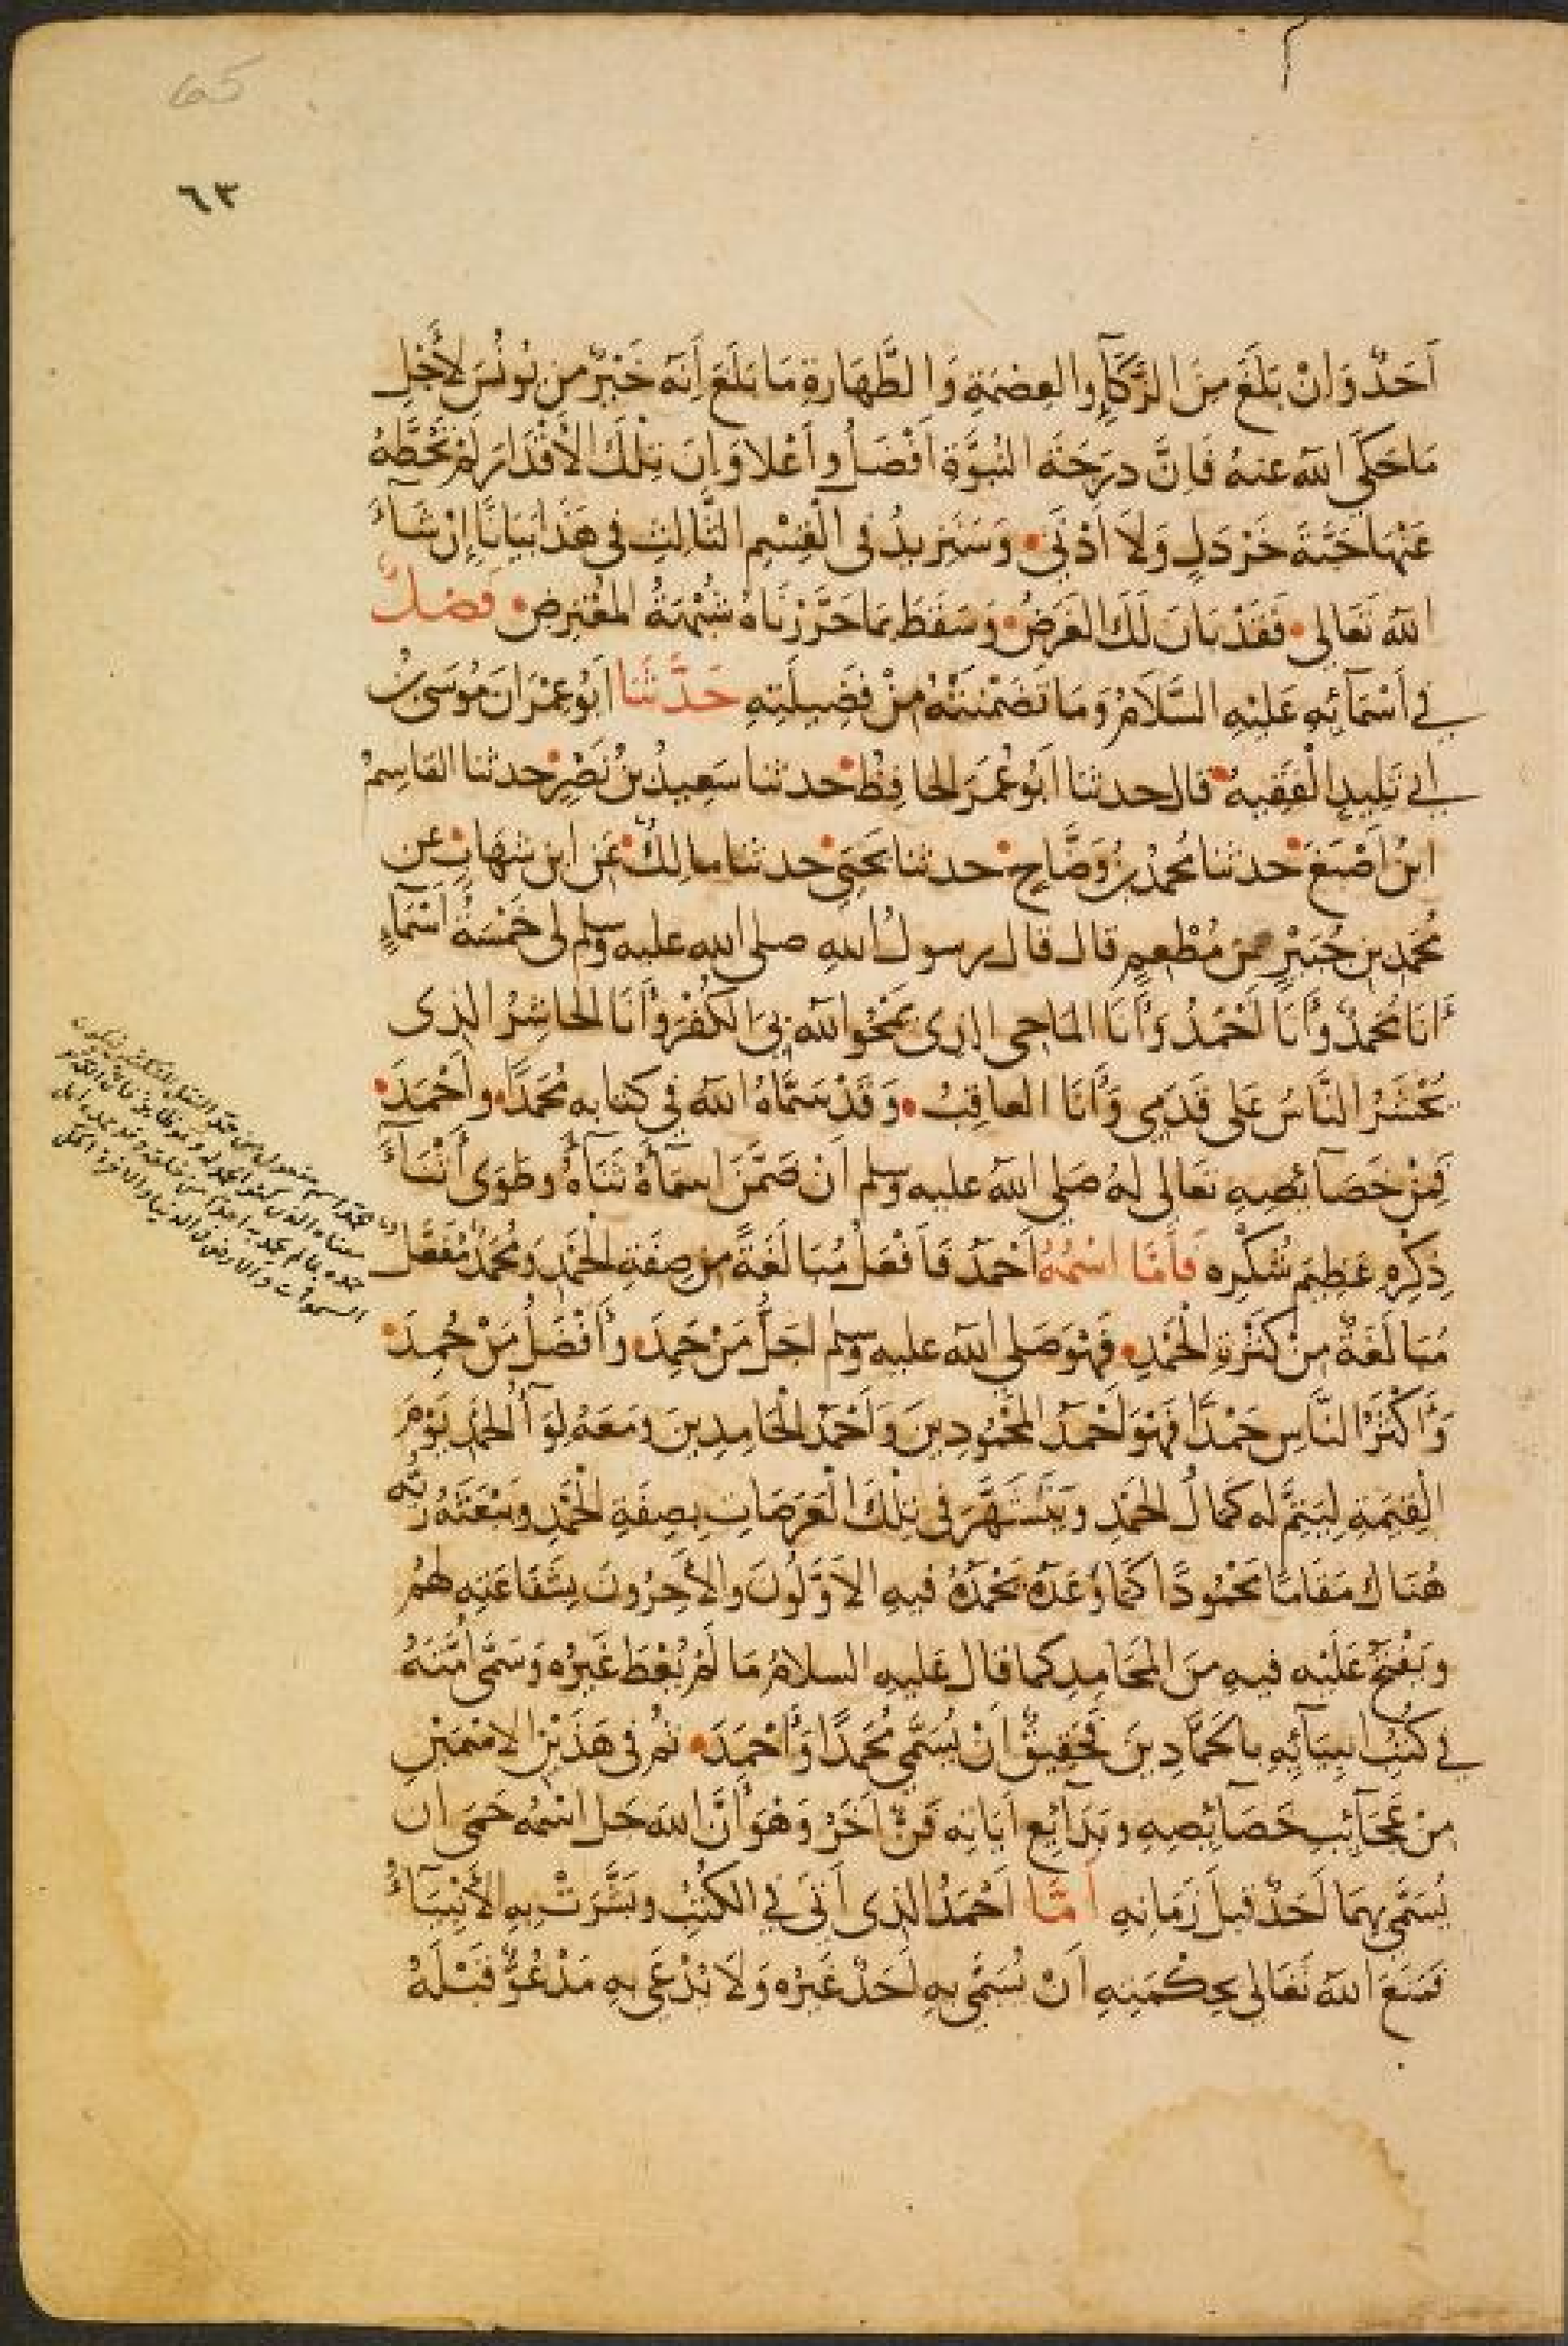 65
٦٣
أَحَدٌ وَاِنْ بَلَغَ مِنَ الزَّكَآءِ والعِصْمَةِ وَالطَّهَارةِ مَا بَلَغَ اَنَّهُ خَيْرٌ مِن يُونُسَ لأَجْلِ
مَا حَكَى اللّه عنهُ فَاِنَّ درَجَةَ النُّبُوَّةِ اَفْضَلُ وأَعْلا وَاِنَ تِلْكَ الأَقْدَارَ لَمْ تَحُطَّهُ
عَنْهَا حَبَّةَ خَرْدَلٍ وَلاَ اَدْنَى وَسَنَزِيدُ فى الْقِسْمِ الثَّالِثِ فى هَذَا بَيَانًا اِنْ شَآءَ
اللّه تَعَالى فَقَدْ بَانَ لَكَ الغَرَضُ وَسَقَطَ بمَا حَرَّرْنَاهُ شُبْهَةُ المُعْتَرِضِ فَصْلٌ
في أَسْمَآئِهِ عَلَيْهِ السَّلاَمُ وَمَا تَضَمَّنَتْهُ مِنْ فَضِيلَتِهِ حَدَّثَنَا اَبُو عِمْرَانَ مُوسَى بنُ
أبي تَلِيدٍ الْفَقِيهُ قال حدثنا أَبُو عُمَرَ الحافِظُ حدثنا سَعِيدُ بنُ نَصْرٍ حدثنا القاسِمُ
ابنُ اَصْبَغَ حدثنا محمدُ بنُ وَضَّاحٍ حدثنا يَحْيَى حدثنا مالِكٌ عَنِ ابنِ شهَابٍ عن
مُحَمدِ بنِ جُبَيْرِ بن مُطْعِمٍ قال قال رسولُ اللهِ صلى الله عليه وسلم لى خَمْسَةُ أَسْمَاءٍ
أَنَا مُحَمدٌ وأَنَا أَحْمَدُ وَأَنَا المَاحِى الذِى يَمْحُو اللّه بِىَ الكُفْرَ وأَنَا الحَاشِرُ الذِى
يُحْشَرُ النَّاسُ عَلى قَدَمِى وَأَنَا العاقِبُ وَقَدْ سَمَّاهُ اللّه فى كتابه مُحَمَّدًا وأَحْمَدَ
فَمِنْ خَصَآئِصِهِ تَعَالى لَهُ صَلى اللّه عليه وسلم اَنْ ضَمَّنَ اَسْمَآءَهُ ثَنَآءَهُ وطَوَى أَثْنَآءَ
ذِكْرِهِ عَظِيمَ شُكْرِه فَأَمَّا اسْمُهُ أَحْمَدُ فَاَفْعَلُ مُبَالَغَةً مِن صِفَةِ الحَمْدِ وَمُحَمَّدٌ مُفَعَّلٌ
مُبَالَغَةً مِنْ كَثْرَةِ الْحَمْدِ فَهُوَ صَلى اللّه عليه وسلم اَجَلُّ مَنْ حَمِدَ وأَفْضَلُ مَنْ حُمِدَ
وَأَكْثَرُ النَّاسِ حَمْدًا فَهُوَ أَحْمَدُ المَحْمُودِينَ وَأَحْمَدُ الْحَامِدِينَ ومَعَهُ لِوَآءُ الحَمْدِ يَوْمَ
الْقِيمَةِ لِيَتِمَّ له كَمَالُ الحَمْدِ وَيَتَشَهَّرَ فى تِلْكَ العَرَصَاتِ بِصِفَةِ الْحَمْدِ وَيَبْعَثُهُ رَبُّهُ
هُنَاك مَقَامًا مَحْمُودًا كَمَا وَعَدَهُ يَحْمَدُهُ فيهِ الاَوَّلُونَ والآخِرُونَ بِشَفَاعَتِه لهُمْ
ويَفْتَحُ عَلَيْه فيهِ مِنَ المَحَامِدِ كما قال عَليهِ السلامُ مَا لَمْ يُعْطَ غَيْرُه وَسَمَّى اُمَّتَهُ
في كُتُبِ اَنبيَآئِهِ بالحَمَّادِينَ فَحَقِيقٌ اَنْ يُسَمَّى مُحَمدًا وَأَحْمَدَ ثم فى هَذَيْنِ الاسْمَيْنِ
مِنْ عَجَآئِبِ خَصَآئِصِهِ وبَدَآئِعِ آيَاتِه فَنٌّ آخَرُ وَهُوَ أَنَّ اللّهَ جَل اسْمُه حَمَى ان
يُسَمَّى بِهِمَا أَحَدٌ قبلَ زَمَانِهِ أَمَّا أَحْمَدُ الذِى أَتَى في الكُتُبِ وبَشَّرَتْ بِهِ الأَنْبِيَآءُ
فَمَنَعَ اللّه تَعَالى بِحِكْمَتِهِ اَنْ يُسَمَّى بِهِ أَحَدٌ غَيْرُه وَلاَ يُدْعَى بِهِ مَدْعُوٌّ قَبْلَهُ
السموات والارض فى الدنيا والاخرة